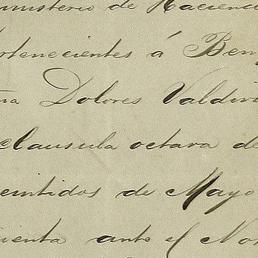 ministerio de Hacienda
rtenecientes á Ben
ña Dolores Valdivi
clausula octava de
eintidos de Mayo
uenta ante el No